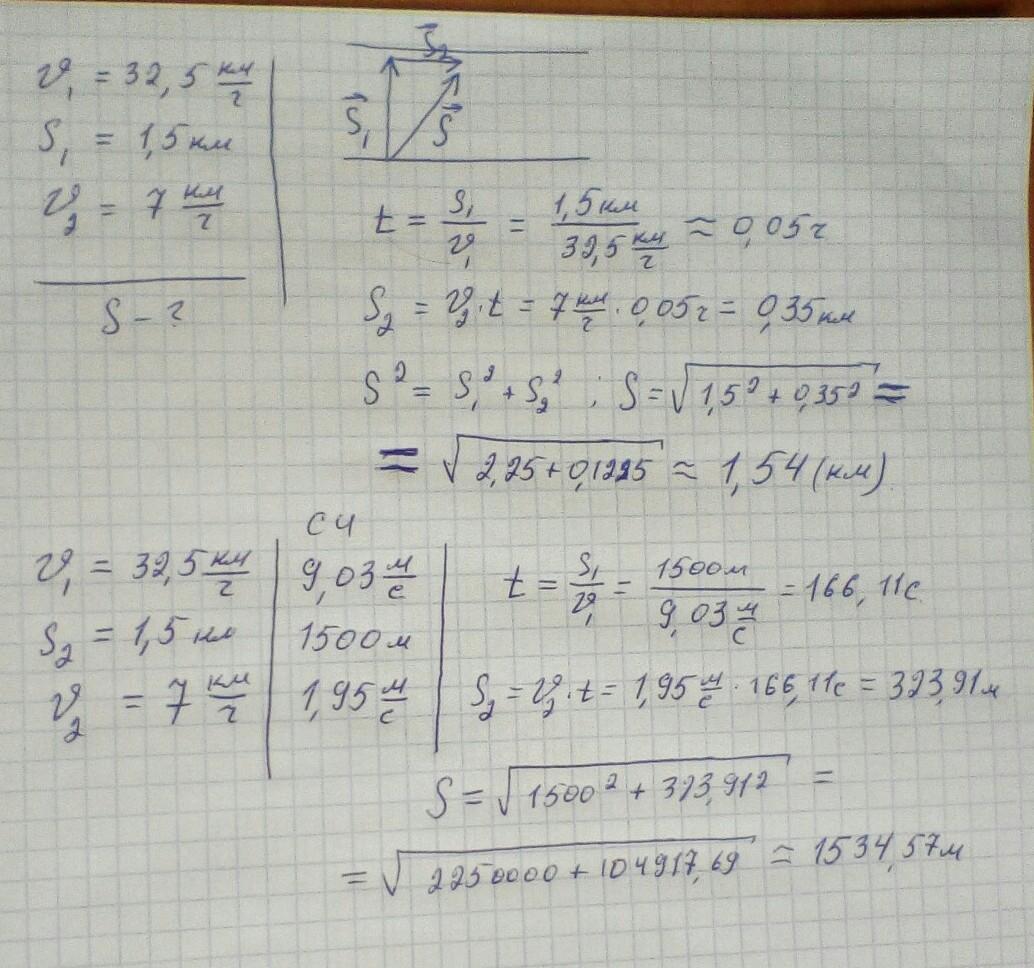 υ₁ = 32,5 км/ч
S₁ = 1,5 км
υ₂ = 7 км/ч
S - ?
S⃗₂
S⃗₁ S⃗
t = S₁/υ₁ = 1,5 км/32,5 км/ч ≈ 0,05 ч
S₂ = υ₂·t = 7 км/ч · 0,05 ч = 0,35 км
S² = S₁² + S₂² ; S = √(1,5² + 0,35²) =
= √(2,25 + 0,1225) ≈ 1,54 (км)
СИ
υ₁ = 32,5 км/ч | 9,03 м/с
S₂ = 1,5 км | 1500 м
υ₂ = 7 км/ч | 1,95 м/с
t = S₁/υ₁ = 1500 м/9,03 м/с = 166,11 с
S₂ = υ₂·t = 1,95 м/с · 166,11 с = 323,91 м
S = √(1500² + 323,91²) =
= √(2250000 + 104917,69) ≈ 1534,57 м